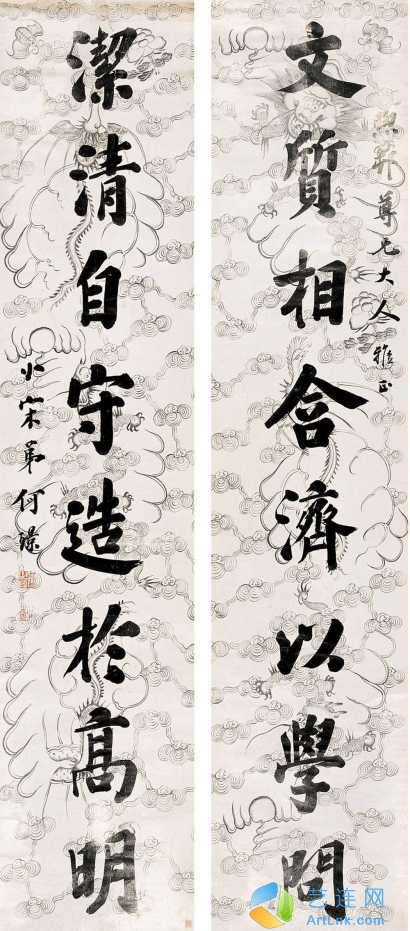 文質相含濟以學問
尊兄大人雅正
潔清自守造於高明
小宋弟何璟
艺连网
ArtLnk.com